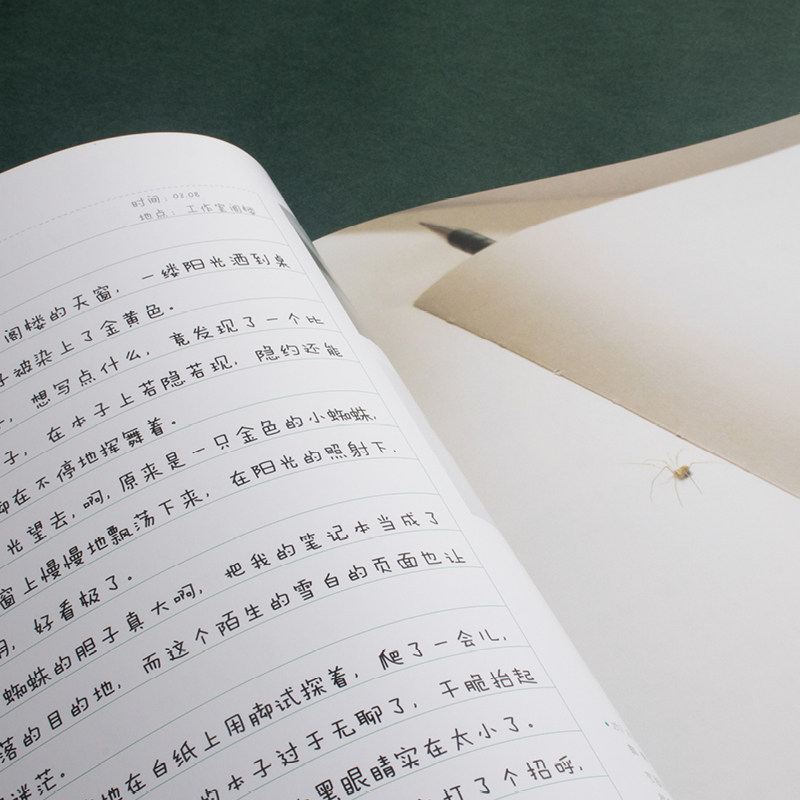 时间：01.08
地点：工作室阁楼
阁楼的天窗，一缕阳光洒到桌
子被染上了金黄色。
，想写点什么，竟发现了一个比
子，在本子上若隐若现，隐约还能
脚在不停地挥舞着。
光望去，啊，原来是一只金色的小蜘蛛，
窗上慢慢地飘荡下来，在阳光的照射下，
明，好看极了。
蜘蛛的胆子真大啊，把我的笔记本当成了
落的目的地，而这个陌生的雪白的页面也让
迷茫。
地在白纸上用脚试探着，爬了一会儿，
的本子过于无聊了，干脆抬起
黑眼睛实在太小了。
打了个招呼，